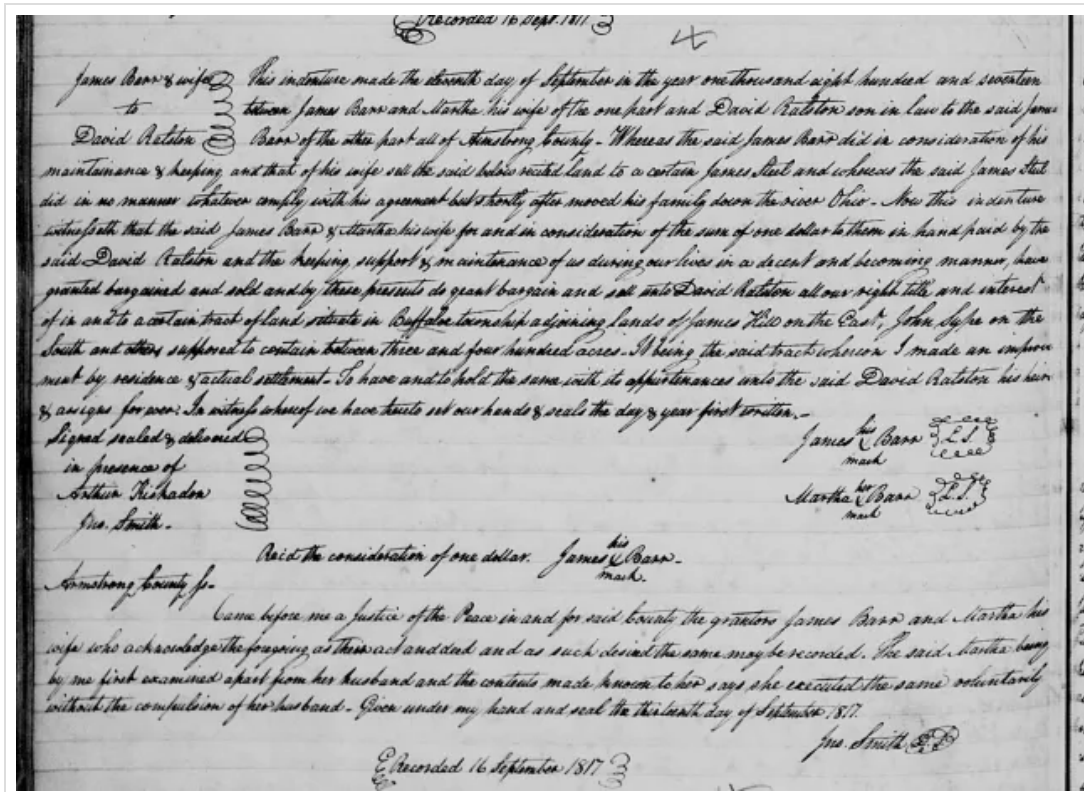 Recorded 16 Sept. 1817
James Barr & wife
to
David Ralston
This indenture made the eleventh day of September in the year one thousand eight hundred and seventeen
between James Barr and Martha his wife of the one part and David Ralston son in law to the said James
Barr of the other part all of Armstrong County - Whereas the said James Barr did in consideration of his
maintainance & keeping and that of his wife sell the said below recited land to a certain James Steel and whereas the said James Steel
did in no manner whatever comply with his agreement but shortly after moved his family down the river Ohio - Now this indenture
witnesseth that the said James Barr & Martha his wife for and in consideration of the sum of one dollar to them in hand paid by the
said David Ralston and the keeping, support & maintenance of us during our lives in a decent and becoming manner, have
granted bargained and sold and by these presents do grant bargain and sell unto David Ralston all our right title and interest
of in and to a certain tract of land situate in Buffaloe township adjoining lands of James Hill on the East, John Sype on the
South and others supposed to contain between three and four hundred acres - It being the said tract whereon I made an improve
ment by residence & actual settlement - To have and to hold the same with its appurtenances unto the said David Ralston his heirs
& assigns for ever: In witness whereof we have hereto set our hands & seals the day & year first written. -
Signed sealed & delivered
in presence of
Arthur Kiskadon
Jno. Smith -
James his Barr L.S.
mark
Martha her Barr L.S.
mark
Recid the consideration of one dollar. James his Barr -
mark.
Armstrong County ss -
Came before me a Justice of the Peace in and for said County the grantors James Barr and Martha his
wife who acknowledge the foregoing as their act and deed and as such desired the same may be recorded. The said Martha being
by me first examined apart from her husband and the contents made known to her says she executed the same voluntarily
without the compulsion of her husband - Given under my hand and seal the thirteenth day of September 1817.
Jno. Smith
Recorded 16 September 1817